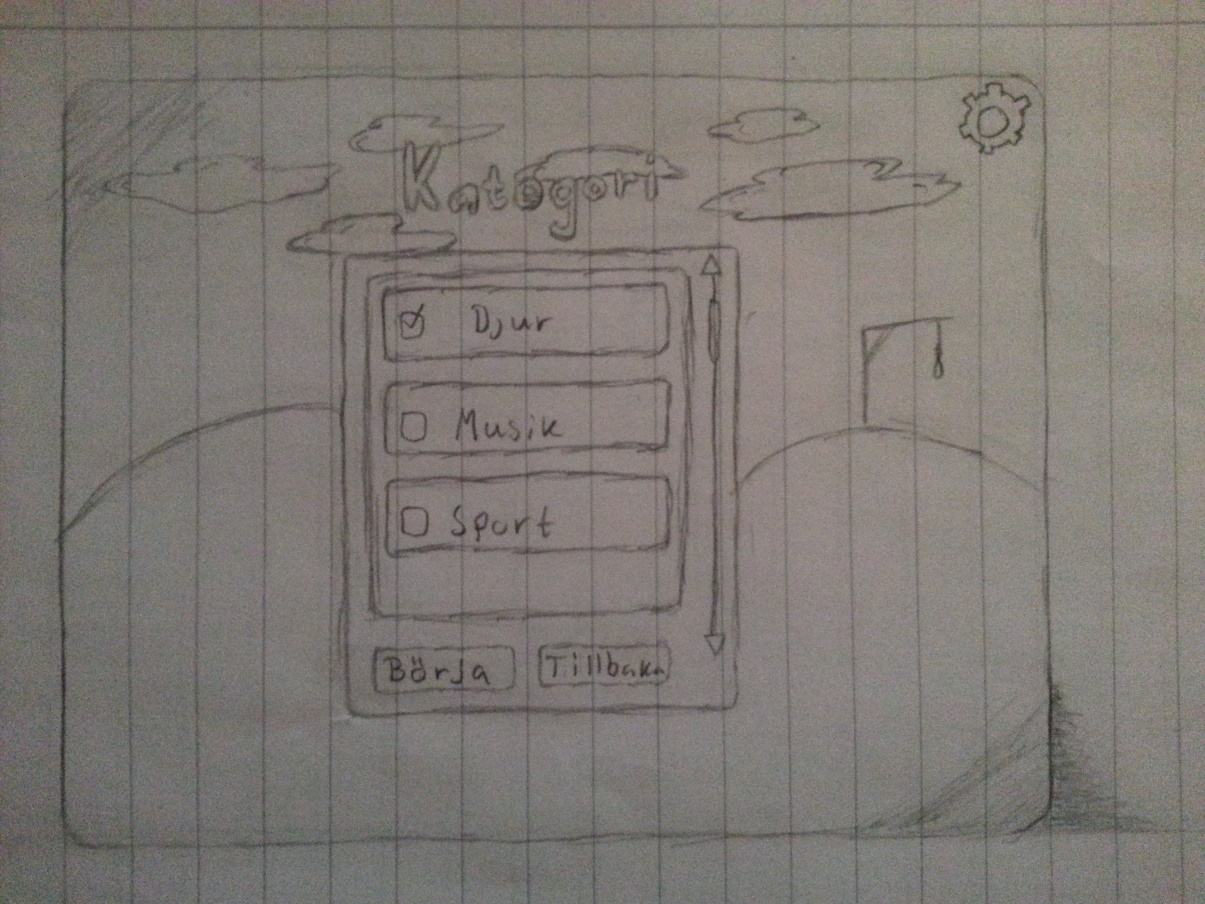 Kategori
Djur
Musik
Sport
Börja Tillbaka